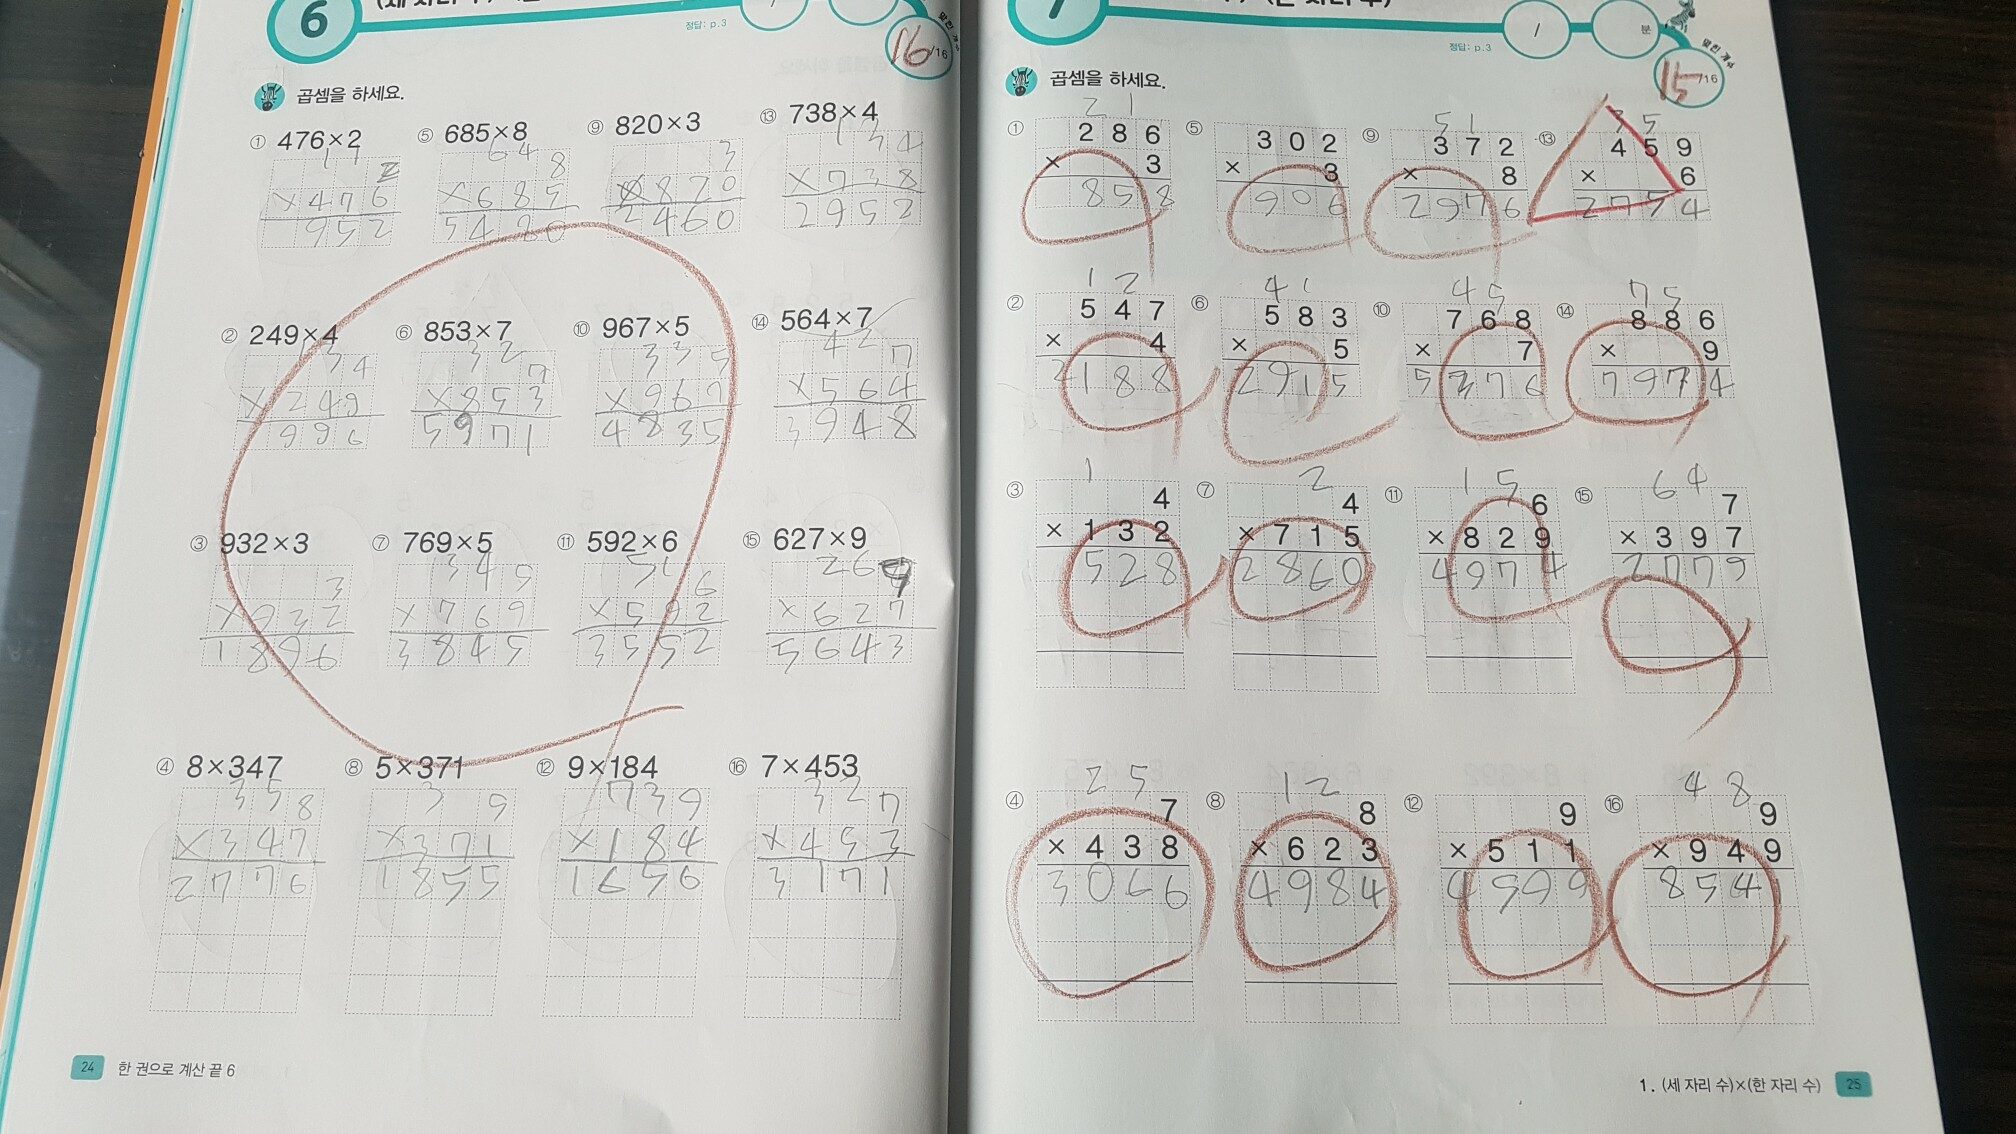 6
정답: p.3
16/16
맞힌 개수
곱셈을 하세요.
① 476×2
1 1
2
×476
952
⑤ 685×8
6 4
8
×685
5480
⑨ 820×3
3
×820
2460
⑬ 738×4
1 3 4
×738
2952
② 249×4
3 4
×249
996
⑥ 853×7
3 2
7
×853
5971
⑩ 967×5
3 3 5
×967
4835
⑭ 564×7
4 2
7
×564
3948
③ 932×3
3
×932
⑦ 769×5
3 4 5
×769
3845
⑪ 592×6
5 1
6
×592
3552
⑮ 627×9
2 6 9
×627
5643
④ 8×347
3 5 8
×347
2776
⑧ 5×371
3
×371
1855
⑫ 9×184
7 3 9
×184
1656
⑯ 7×453
3 2 7
×453
3171
24 한 권으로 계산 끝 6
7
정답: p.3
/
분
15/16
맞힌 개수
곱셈을 하세요.
①
2 1
286
× 3
858
⑤
302
× 3
906
⑨
5 1
372
× 8
2976
⑬
3 5
459
× 6
2754
②
1 2
547
× 4
2188
⑥
4 1
583
× 5
2915
⑩
4 5
768
× 7
5376
⑭
7 5
886
× 9
7974
③
1
4
×132
528
⑦
2
4
×715
2860
⑪
1 5
6
×829
4974
⑮
6 4
7
×397
2779
④
2 5
7
×438
3066
⑧
1 2
8
×623
4984
⑫
9
×511
4599
⑯
4 8
9
×949
8541
1. (세 자리 수)×(한 자리 수) 25